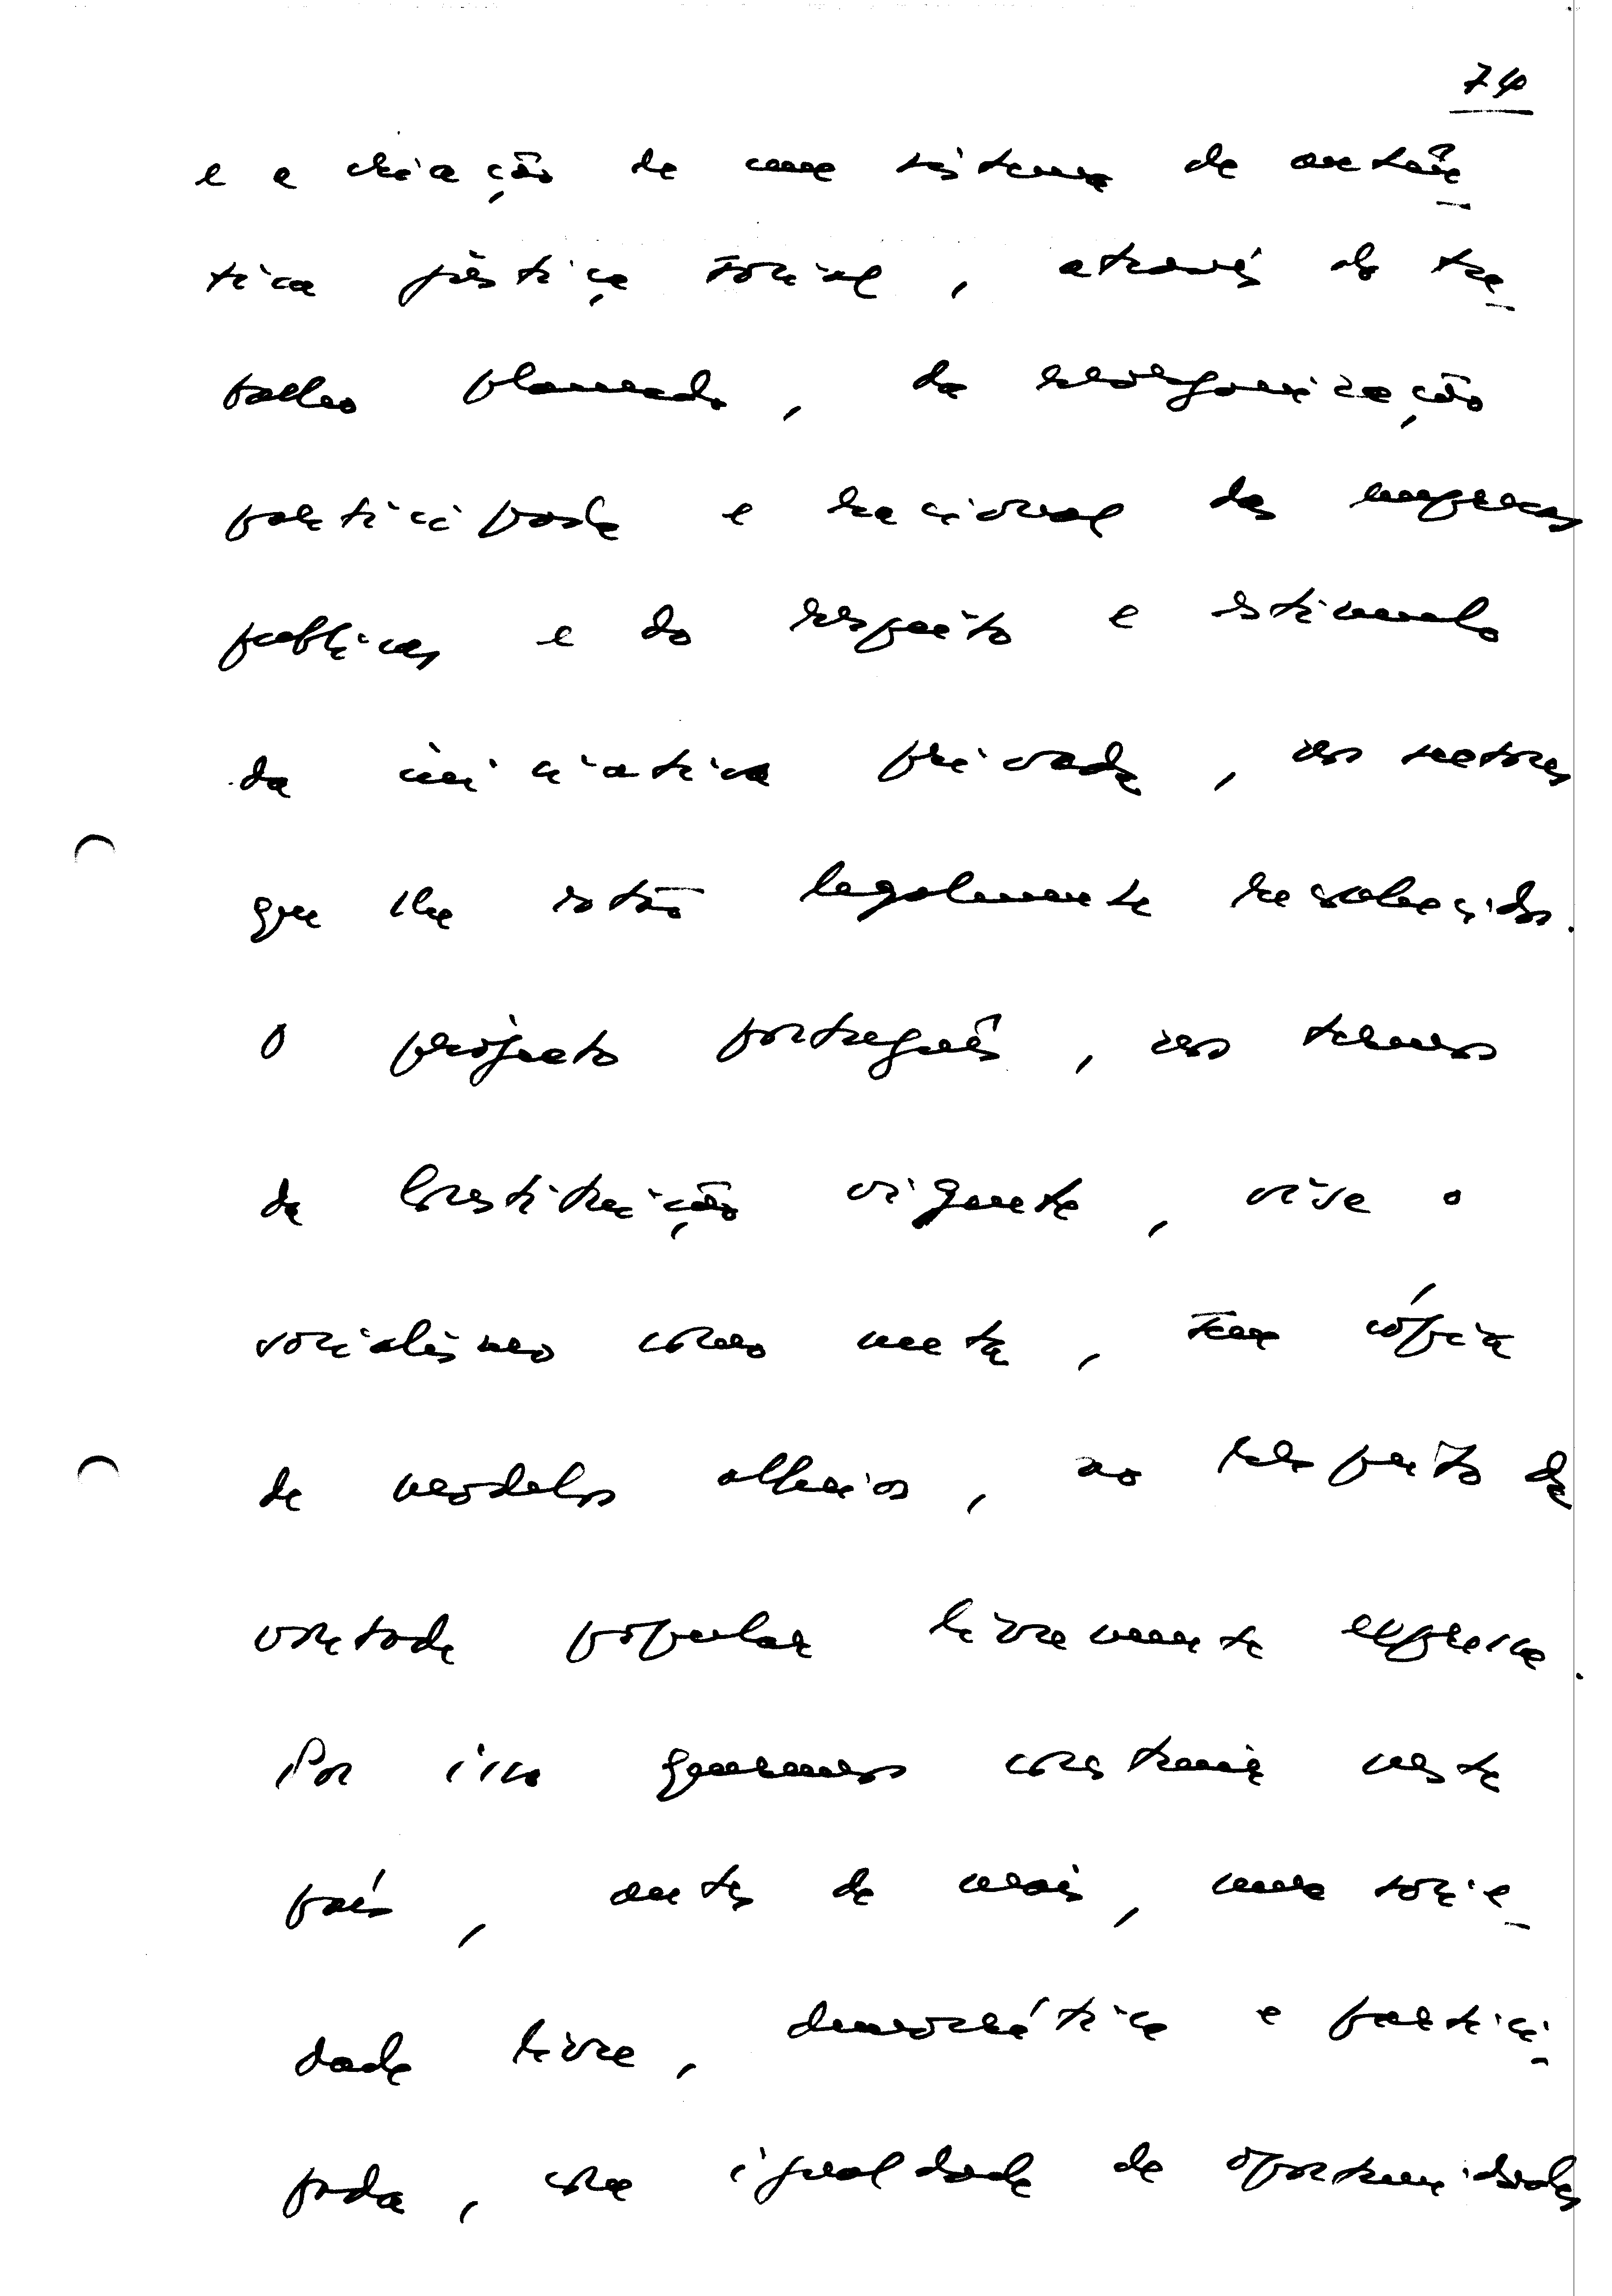 74
e a criação de um sistema de autên
tica justiça social, através do tra
balho planeado, da reorganização
participada e racional das empresas
públicas e do respeito e estímulo
da iniciativa privada, nos sectores
que lhe estão legalmente reconhecidos.
O projecto português, nos termos
da Constituição vigente, visa o
socialismo como meta, sem cópia
de modelos alheios, no respeito da
vontade popular livremente expressa.
Por isso queremos construir neste
país, antes de mais, uma socie
dade livre, democrática e partici
pada, com igualdade de oportunidades